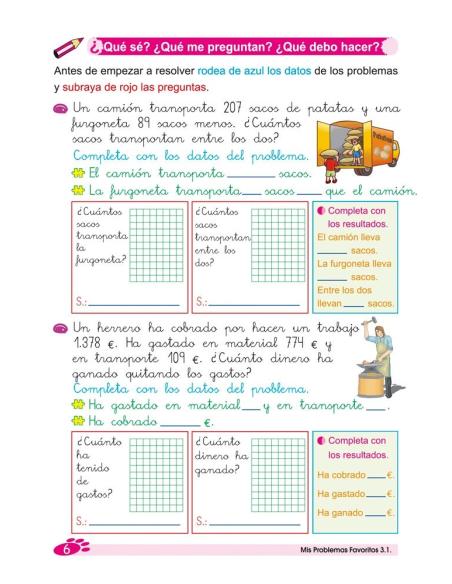 ¿Qué sé? ¿Qué me preguntan? ¿Qué debo hacer?
Antes de empezar a resolver rodea de azul los datos de los problemas
y subraya de rojo las preguntas.
Un camión transporta 207 sacos de patatas y una
furgoneta 89 sacos menos. ¿Cuántos
sacos transportan entre los dos?
Completa con los datos del problema.
El camión transporta ______ sacos.
La furgoneta transporta ___ sacos ___ que el camión.
¿Cuántos
sacos
transporta
la
furgoneta?
S.: ______
¿Cuántos
sacos
transportan
entre los
dos?
S.: ______
Completa con
los resultados.
El camión lleva
______ sacos.
La furgoneta lleva
______ sacos.
Entre los dos
llevan ____ sacos.
Un herrero ha cobrado por hacer un trabajo
1.378 €. Ha gastado en material 774 € y
en transporte 109 €. ¿Cuánto dinero ha
ganado quitando los gastos?
Completa con los datos del problema.
Ha gastado en material ___ y en transporte ___.
Ha cobrado ______ €.
¿Cuánto
ha
tenido
de
gastos?
S.: ______
¿Cuánto
dinero ha
ganado?
S.: ______
Completa con
los resultados.
Ha cobrado ____ €.
Ha gastado ____ €.
Ha ganado ____ €.
6
Mis Problemas Favoritos 3.1.